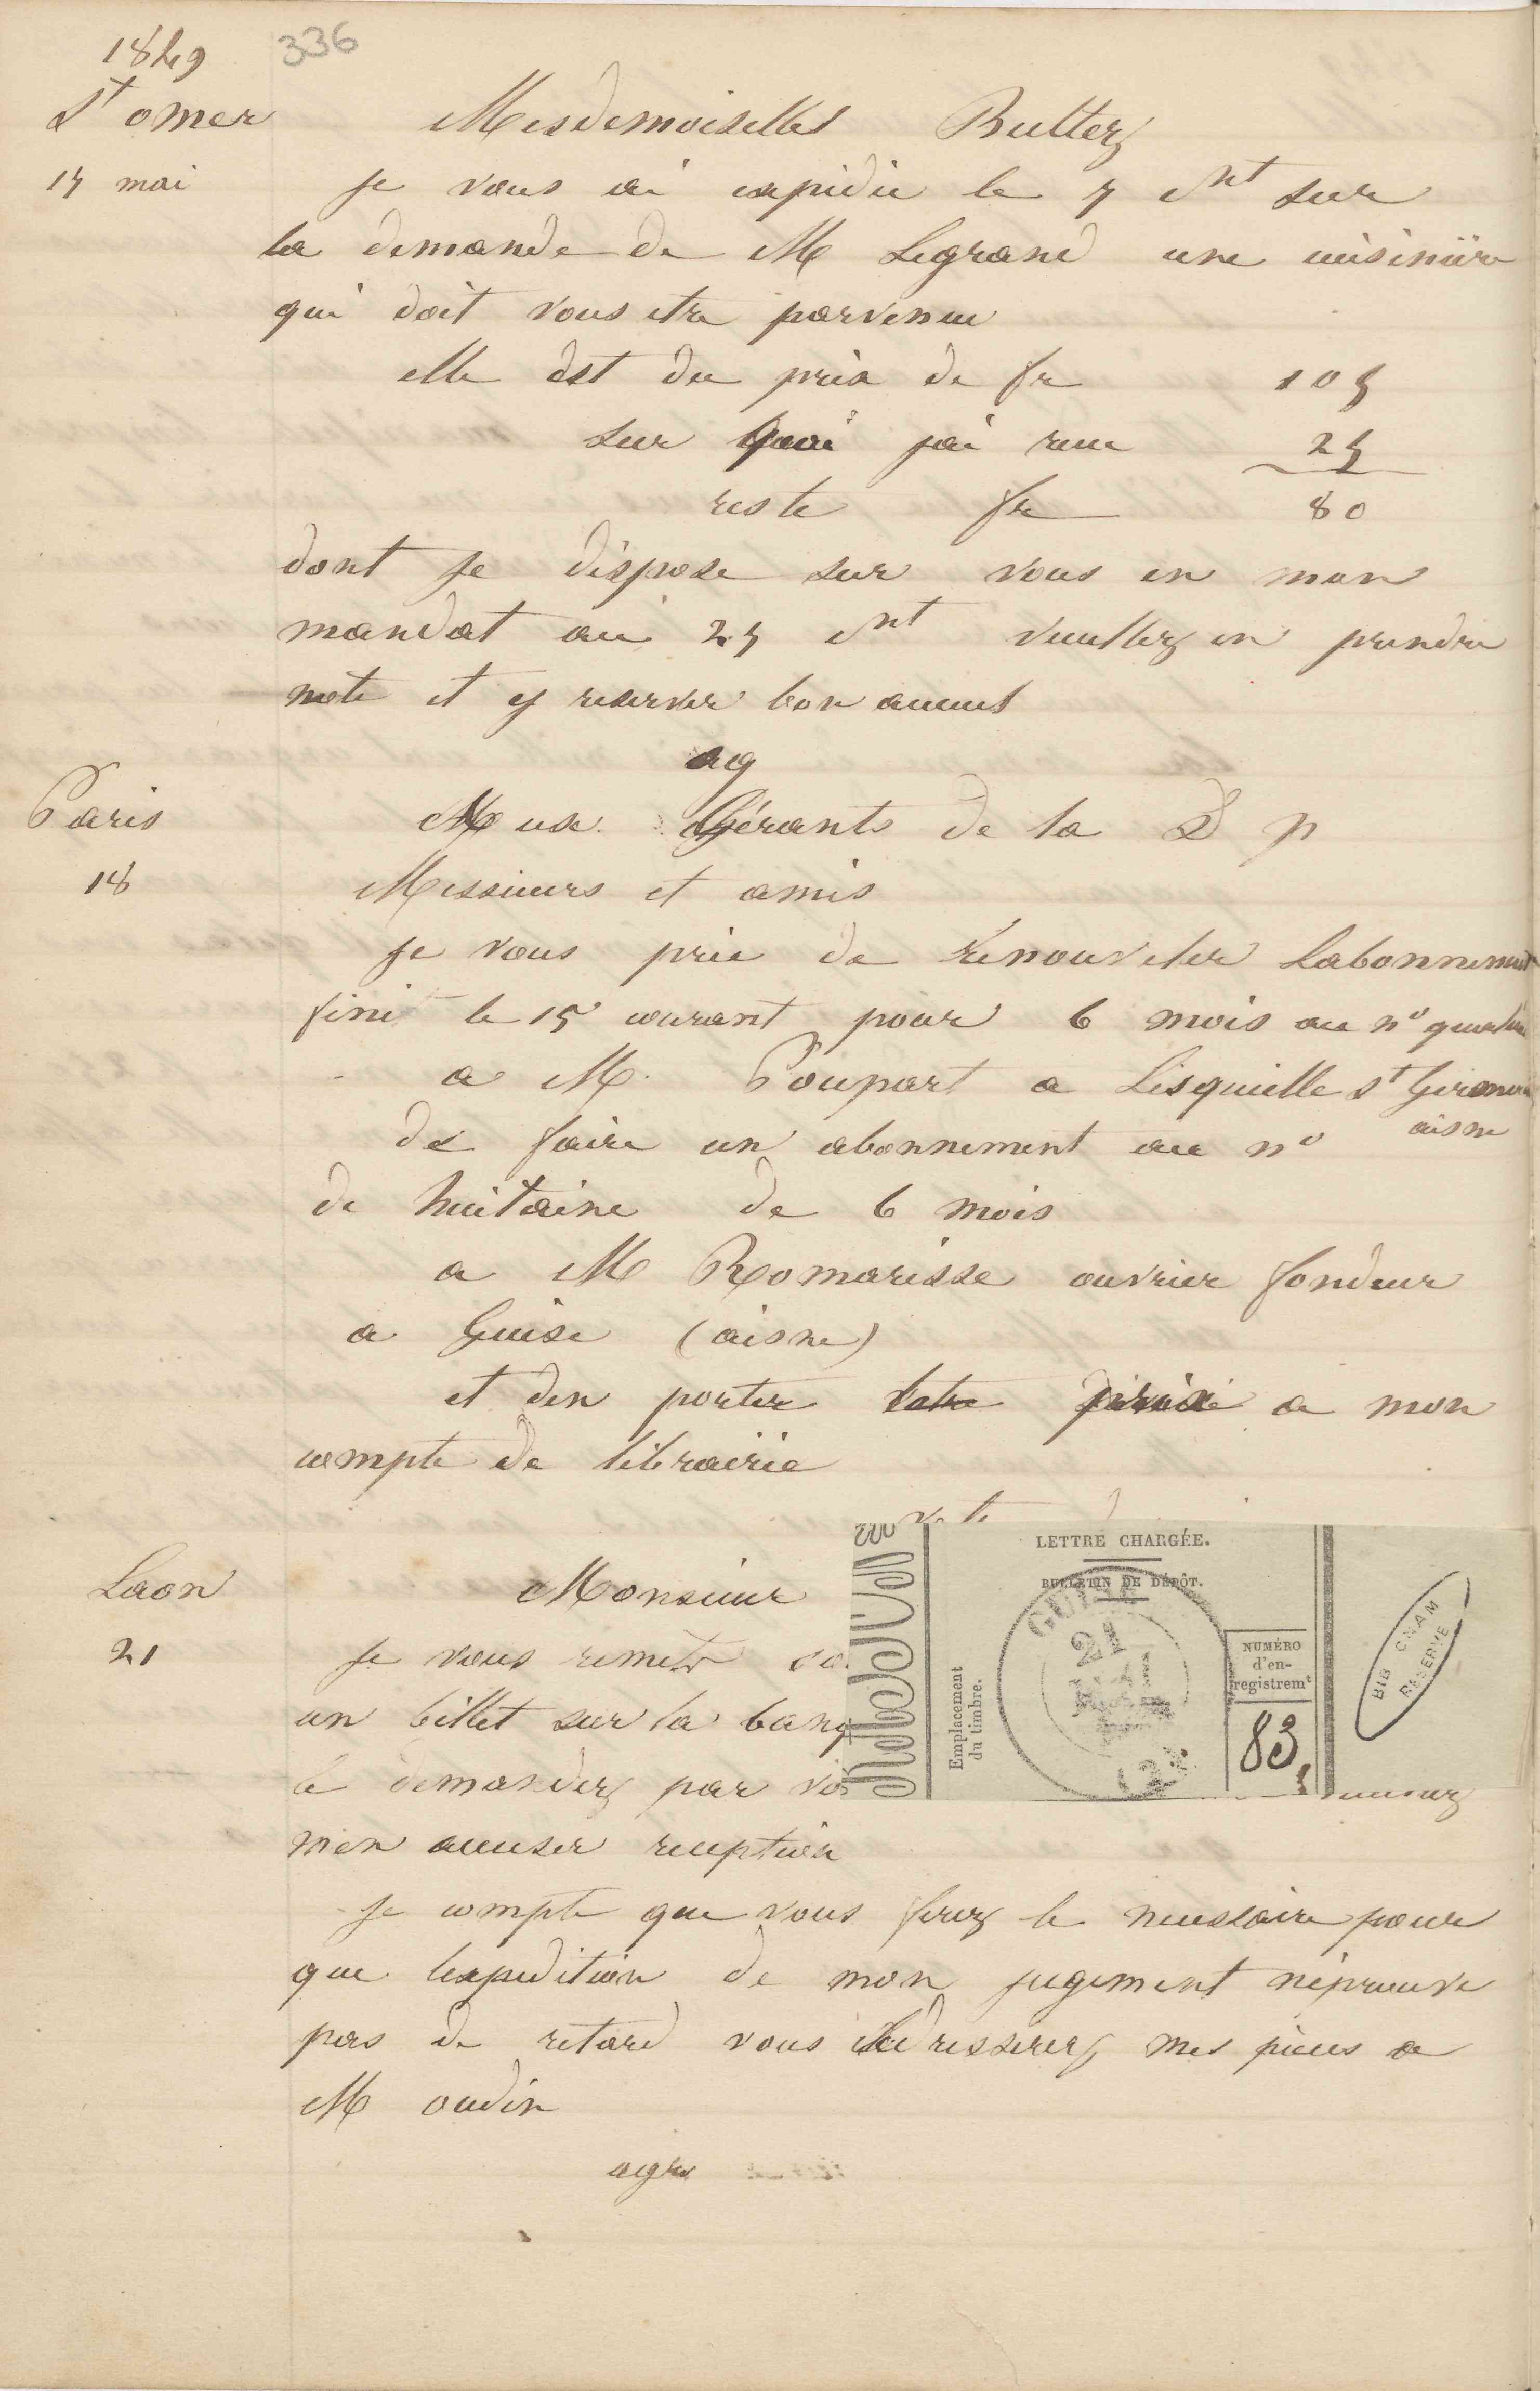 1849 336
St omer Mesdemoiselles Butterz
15 mai je vous ai expidié le 5 ct sur
la demande de M Legrand une cuisinière
qui doit vous etre parvenue
elle est du prix de fr 105
sur quoi jai recu 25
reste fr 80
dont je dispose sur vous en mon
mandat au 25 ct veuillez en prendre
note et y reserver bon accueil
ag
Paris Mux Gérants de la D p
18 Messieurs et amis
je vous prie de renouveler labonnement
fini le 15 courant pour 6 mois au no
a M. Poupart a Lesquielle St Germain
aisne
de faire un abonnement au no
de huitaine de 6 mois
a M Romarisse ouvrier fondeur
a Guise (aisne)
et den porter prix a mon
compte de librairie
LETTRE CHARGÉE.
BULLETIN DE DÉPÔT.
GUISE
21
MAI
Emplacement
du timbre.
NUMÉRO
d'en-
registremt
83
BIB CNAM
RESERVE
Laon Monsieur
21 je vous remets
un billet sur la banq
le demandez par
men accuser reception
je compte que vous ferez le necessaire pour
que lexpedition de mon jugement néprouve
pas de retard vous adresserez mes pieces a
M oudin
agr